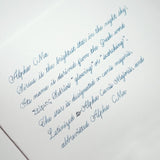 Alpha CMa
Sirius is the brightest star in the night sky.
Its name is derived from the Greek word
"Seirios" "glowing" or "scorching".
The star is designated α Canis Majoris,
Latinized to Alpha Canis Majoris, and
abbreviated Alpha CMa